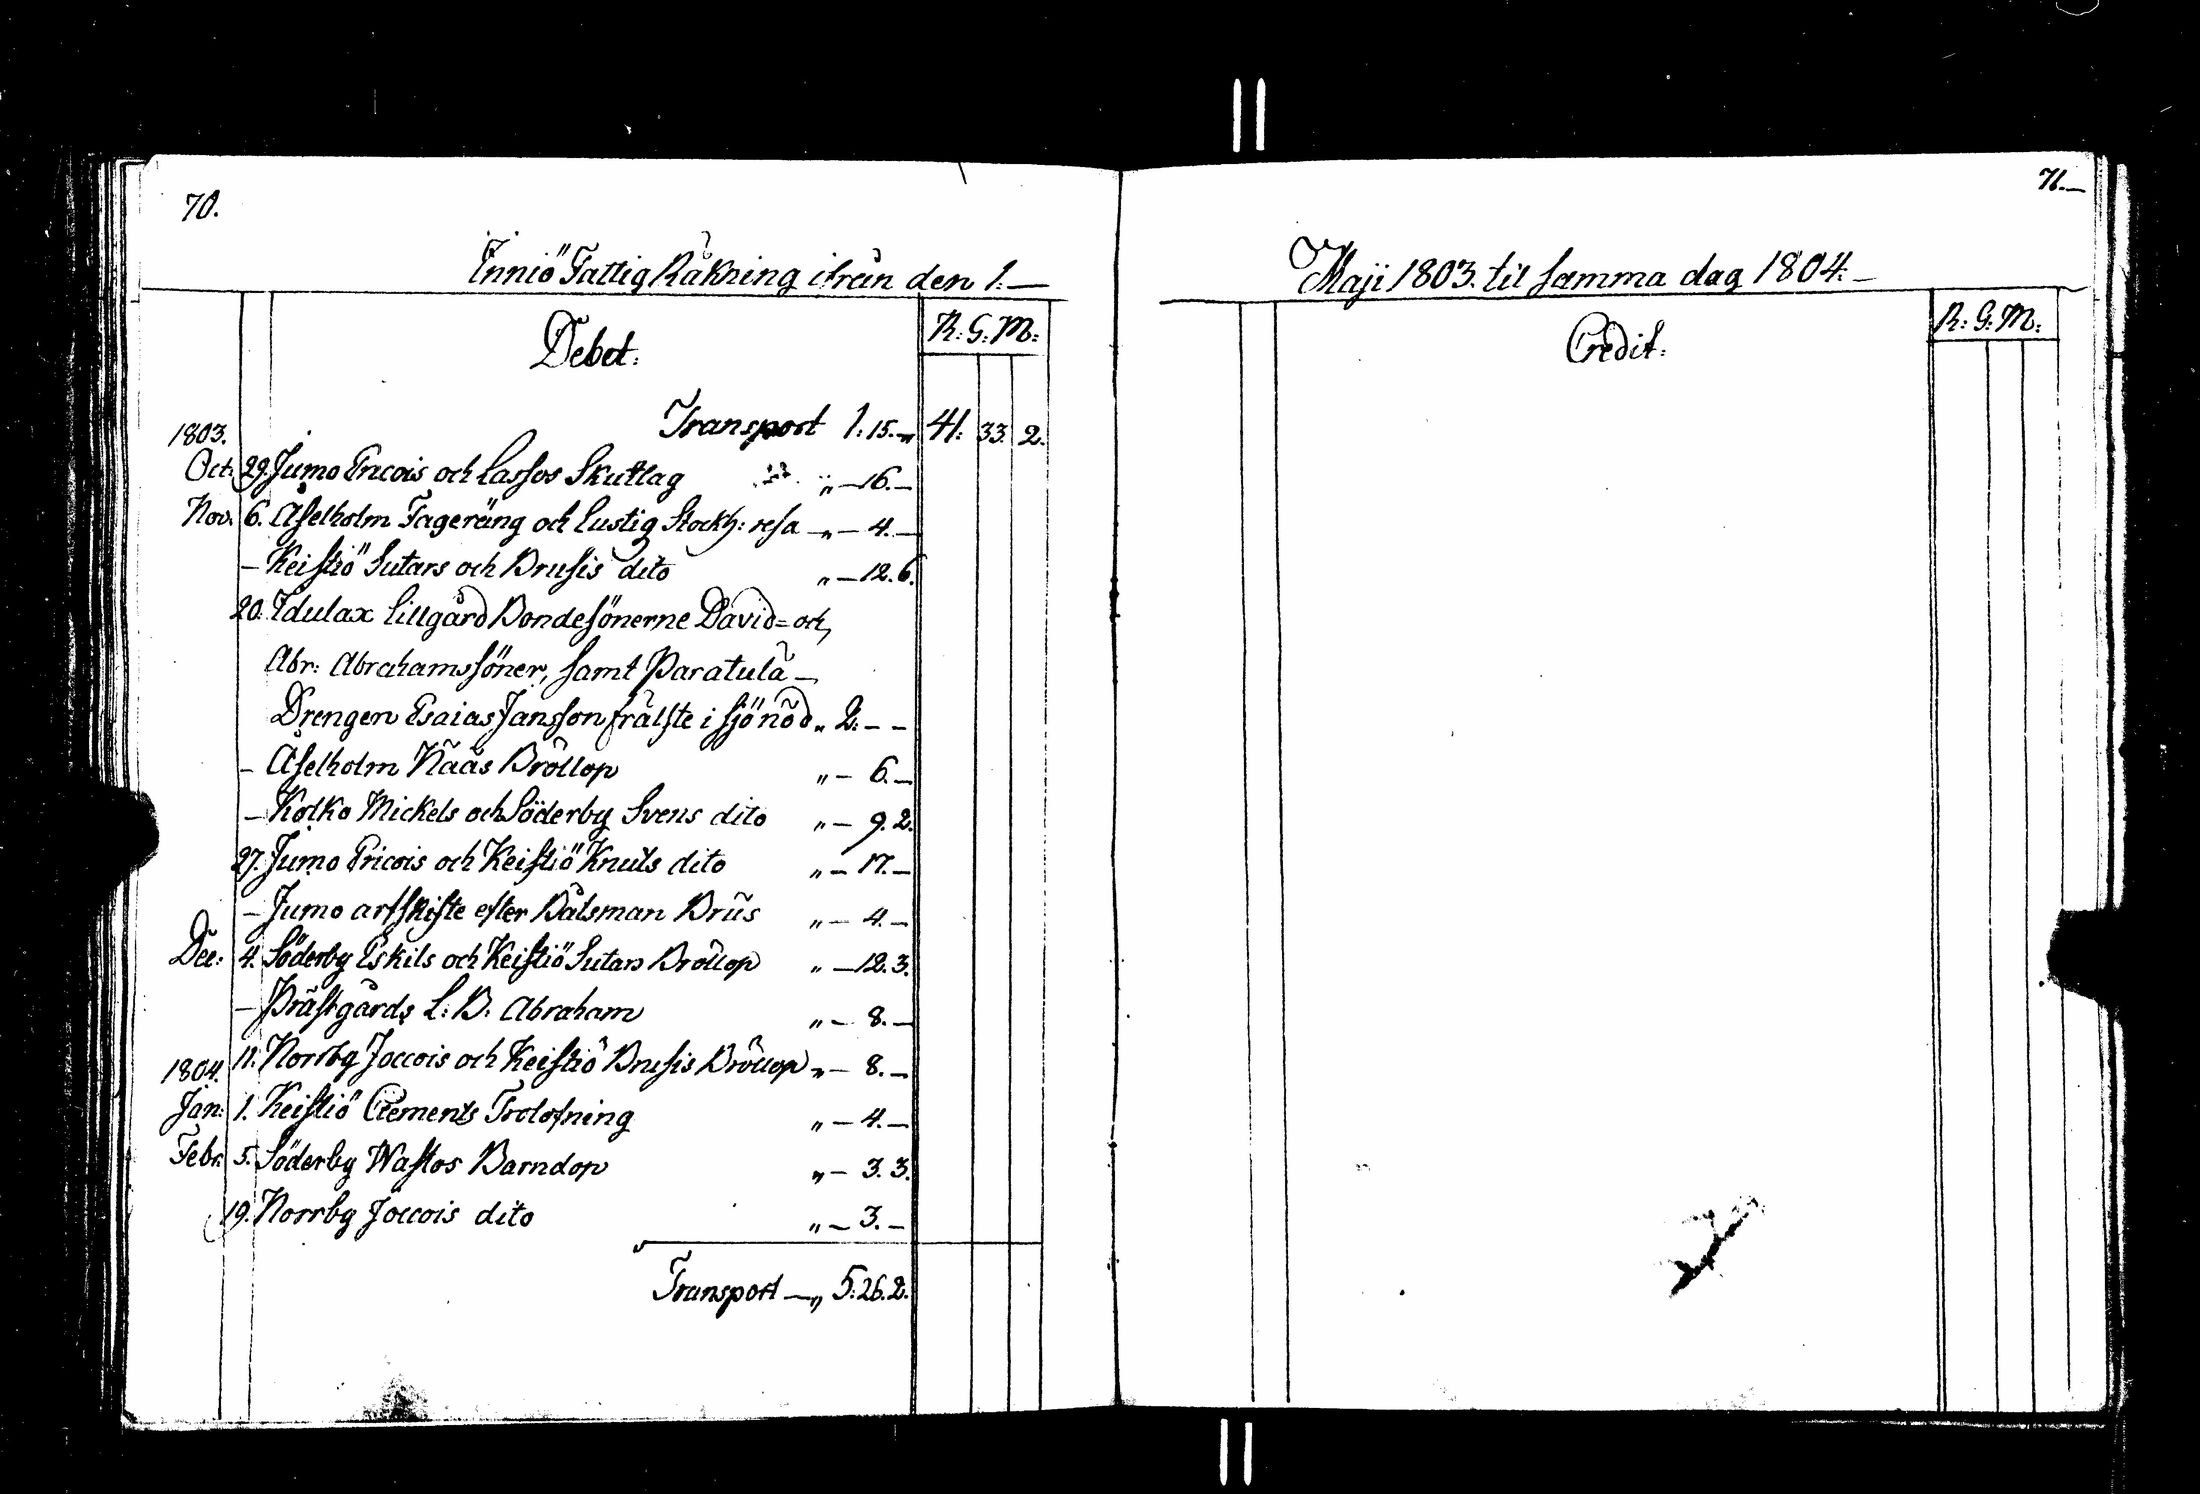 70.
Inniö Fattig Räkning ifrån den 1.—
Debet:
R: G: M:
1803. Transport 1: 15. „ 41: 33. 2.
Oct: 29. Jumo Ericois och Lassos Skutlag „ — 16. —
Nov. 6. Åselholm Tageräng och Lustig Stockh: resa — „ — 4. —
— Keistiö Sutars och Brusis dito „ — 12. 6.
20. Idulax Lillgård Bondesönerne David = och
Abr: Abrahamssöner, samt Paratula —
Drengen Esaias Jansson frälste i sjönöd „ 2: — —
— Åselholm Nääs Bröllop „ — 6. —
— Kolko Mickels och Söderby Svens dito „ — 9. 2.
27. Jumo Ericois och Keistiö Knuts dito „ — 17. —
— Jumo arfskifte efter Båtsman Brus „ — 4. —
Dec: 4. Söderby Eskils och Keistiö Sutars Bröllop „ — 12. 3.
— Prästgårds L: B: Abraham „ — 8. —
11. Norrby Joccois och Keistiö Brusis Bröllop „ — 8. —
1804.
Jan: 1. Keistiö Clements Trolofning „ — 4. —
Febr. 5. Söderby Wastos Barndop „ — 3. 3.
19. Norrby Joccois dito „ — 3. —
Transport — „ 5: 26. 2.
71.—
Maji 1803. til samma dag 1804.—
Credit:
R: G: M: